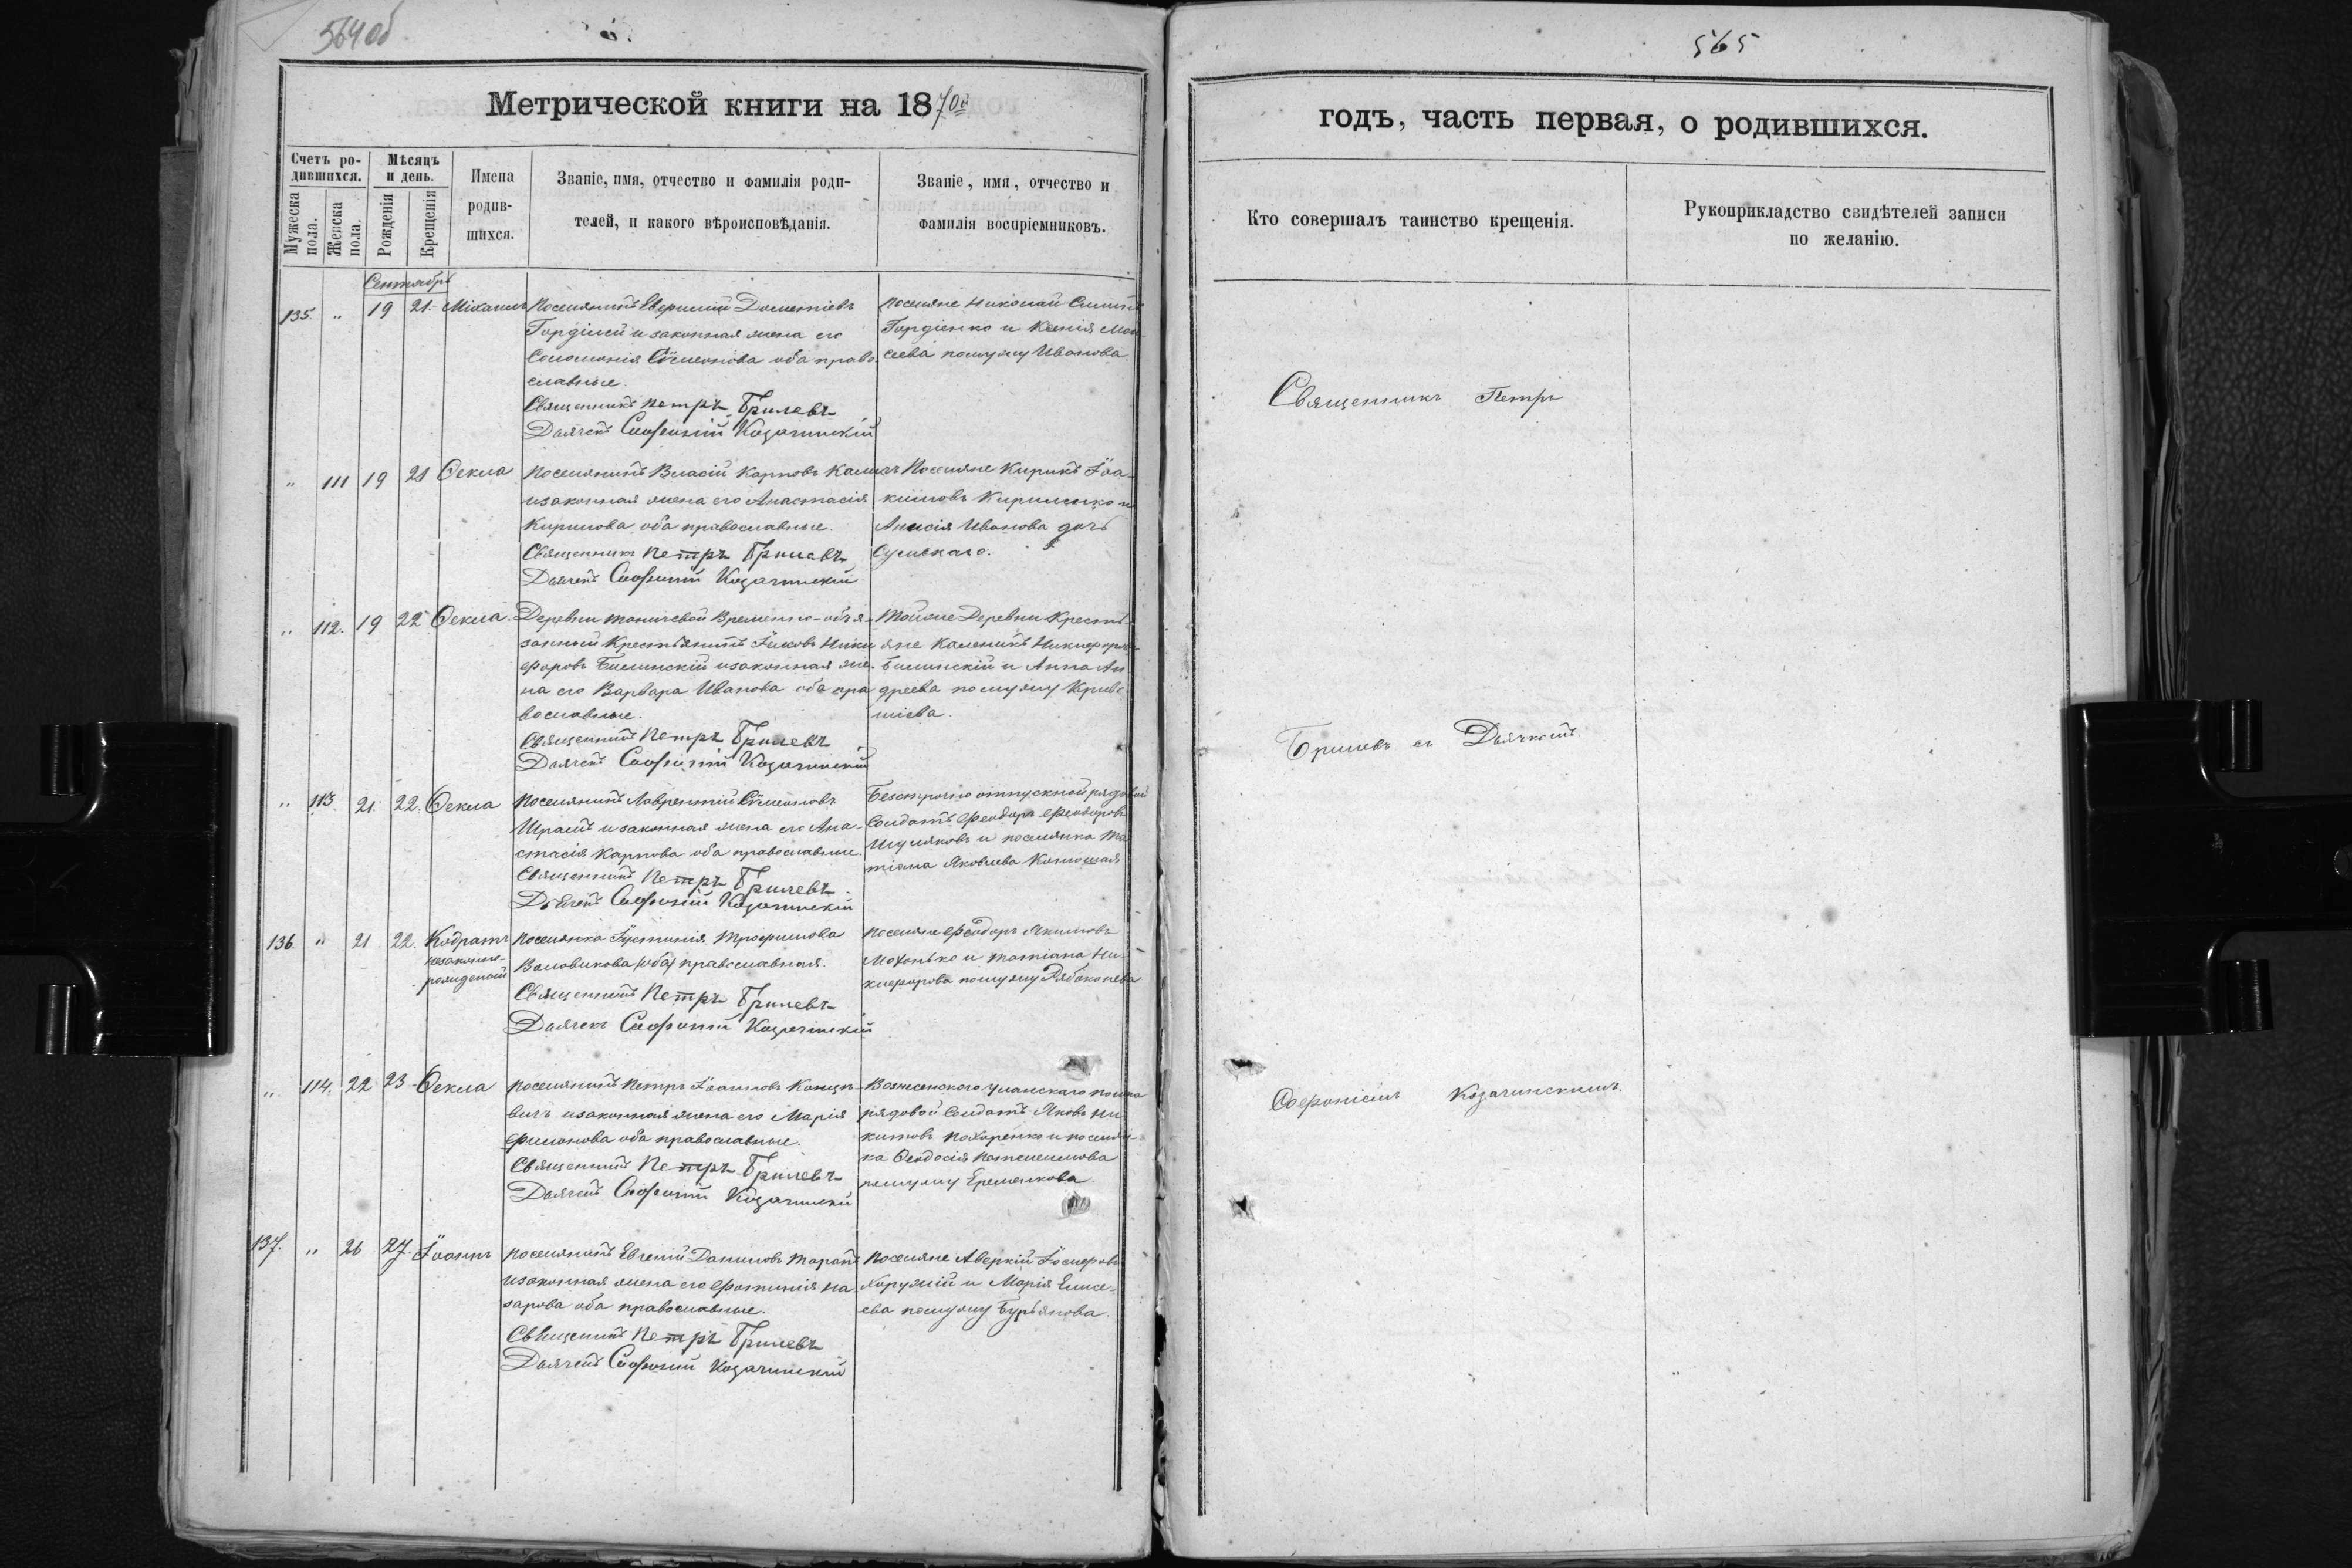 564об
Метрической книги на 1870й
Счетъ ро-
дившихся.
Мѣсяцъ
и день.
Мужеска
пола.
Женска
пола.
Рожденія
Крещенія
Имена
родив-
шихся.
Званіе, имя, отчество и фамилія роди-
телей, и какого вѣроисповѣданія.
Званіе, имя, отчество и
фамилія воспріемниковъ.
Сентябрь
135. " 19 21. Михаилъ
Поселянинъ Дометіевъ
Гордіенко и законная жена его
Соломонія Сѵмеонова оба право-
славные.
Священникъ Петръ Грилевъ
Дьячекъ Софроній Козачинскій
Поселяне Николай
Гордіенко и Ксенія Мои
сеева по мужу Иванова.
" 111 19 21 Ѳекла
Поселянинъ Власій Карповъ
и законная жена его Анастасія
Кирилова оба православные.
Священникъ Петръ Грилевъ
Дьячекъ Софроній Козачинскій
Поселяне Кирикъ Іоа-
кимовъ Кириленко и
Анисія Иванова дочь
" 112. 19 22 Ѳекла.
Деревни Временно-обя-
занный Крестьянинъ Іаковъ Ники
форовъ Билинскій и законная же-
на его Варвара Иванова оба пра
вославные.
Священникъ Петръ Грилевъ
Дьячекъ Софроній Козачинскій
Той же Деревни Крестья
яне Каленикъ Никифоровъ
Билинскій и Анна Ан
дреева по мужу
" 113. 21. 22. Ѳекла
Поселянинъ Лаврентій Сѵмеоновъ
и законная жена его Ана-
стасія Карпова оба православные.
Священникъ Петръ Грилевъ
Дьячекъ Софроній Козачинскій
Безсрочно отпускной рядовой
Солдатъ Феодоръ Феодоровъ
Шуляковъ и поселянка Та
тіана Яковлева
136. " 21 22. Кодратъ
незаконно-
рожденный
Поселянка Іустинія Трофимова
Воловикова (оба) православная.
Священникъ Петръ Грилевъ
Дьячекъ Софроній Козачинскій
Поселяне Феодоръ Якимовъ
Мохонько и Татіана Ни-
кифорова по мужу Рябоконева
" 114. 22 23 Ѳекла
Поселянинъ Петръ Іоанновъ
вичъ и законная жена его Марія
Филонова оба православные.
Священникъ Петръ Грилевъ
Дьячекъ Софроній Козачинскій
Вознесенскаго уланскаго полка
рядовой Солдатъ Яковъ Ни
китовъ Похоренко и поселян-
ка Ѳеодосія
по мужу Еременкова.
137. " 26 27. Іоаннъ
Поселянинъ Евгеній Даниловъ Таранъ
и законная жена его Фотинія На
зарова оба православные.
Священникъ Петръ Грилевъ
Дьячекъ Софроній Козачинскій
Поселяне Аверкій Іосифовъ
Хоружій и Марія Елисе-
ева по мужу Бурьянова.
565
годъ, часть первая, о родившихся.
Кто совершалъ таинство крещенія.
Рукоприкладство свидѣтелей записи
по желанію.
Священникъ Петръ
Грилевъ съ Дьячкомъ
Софроніемъ Козачинскимъ.